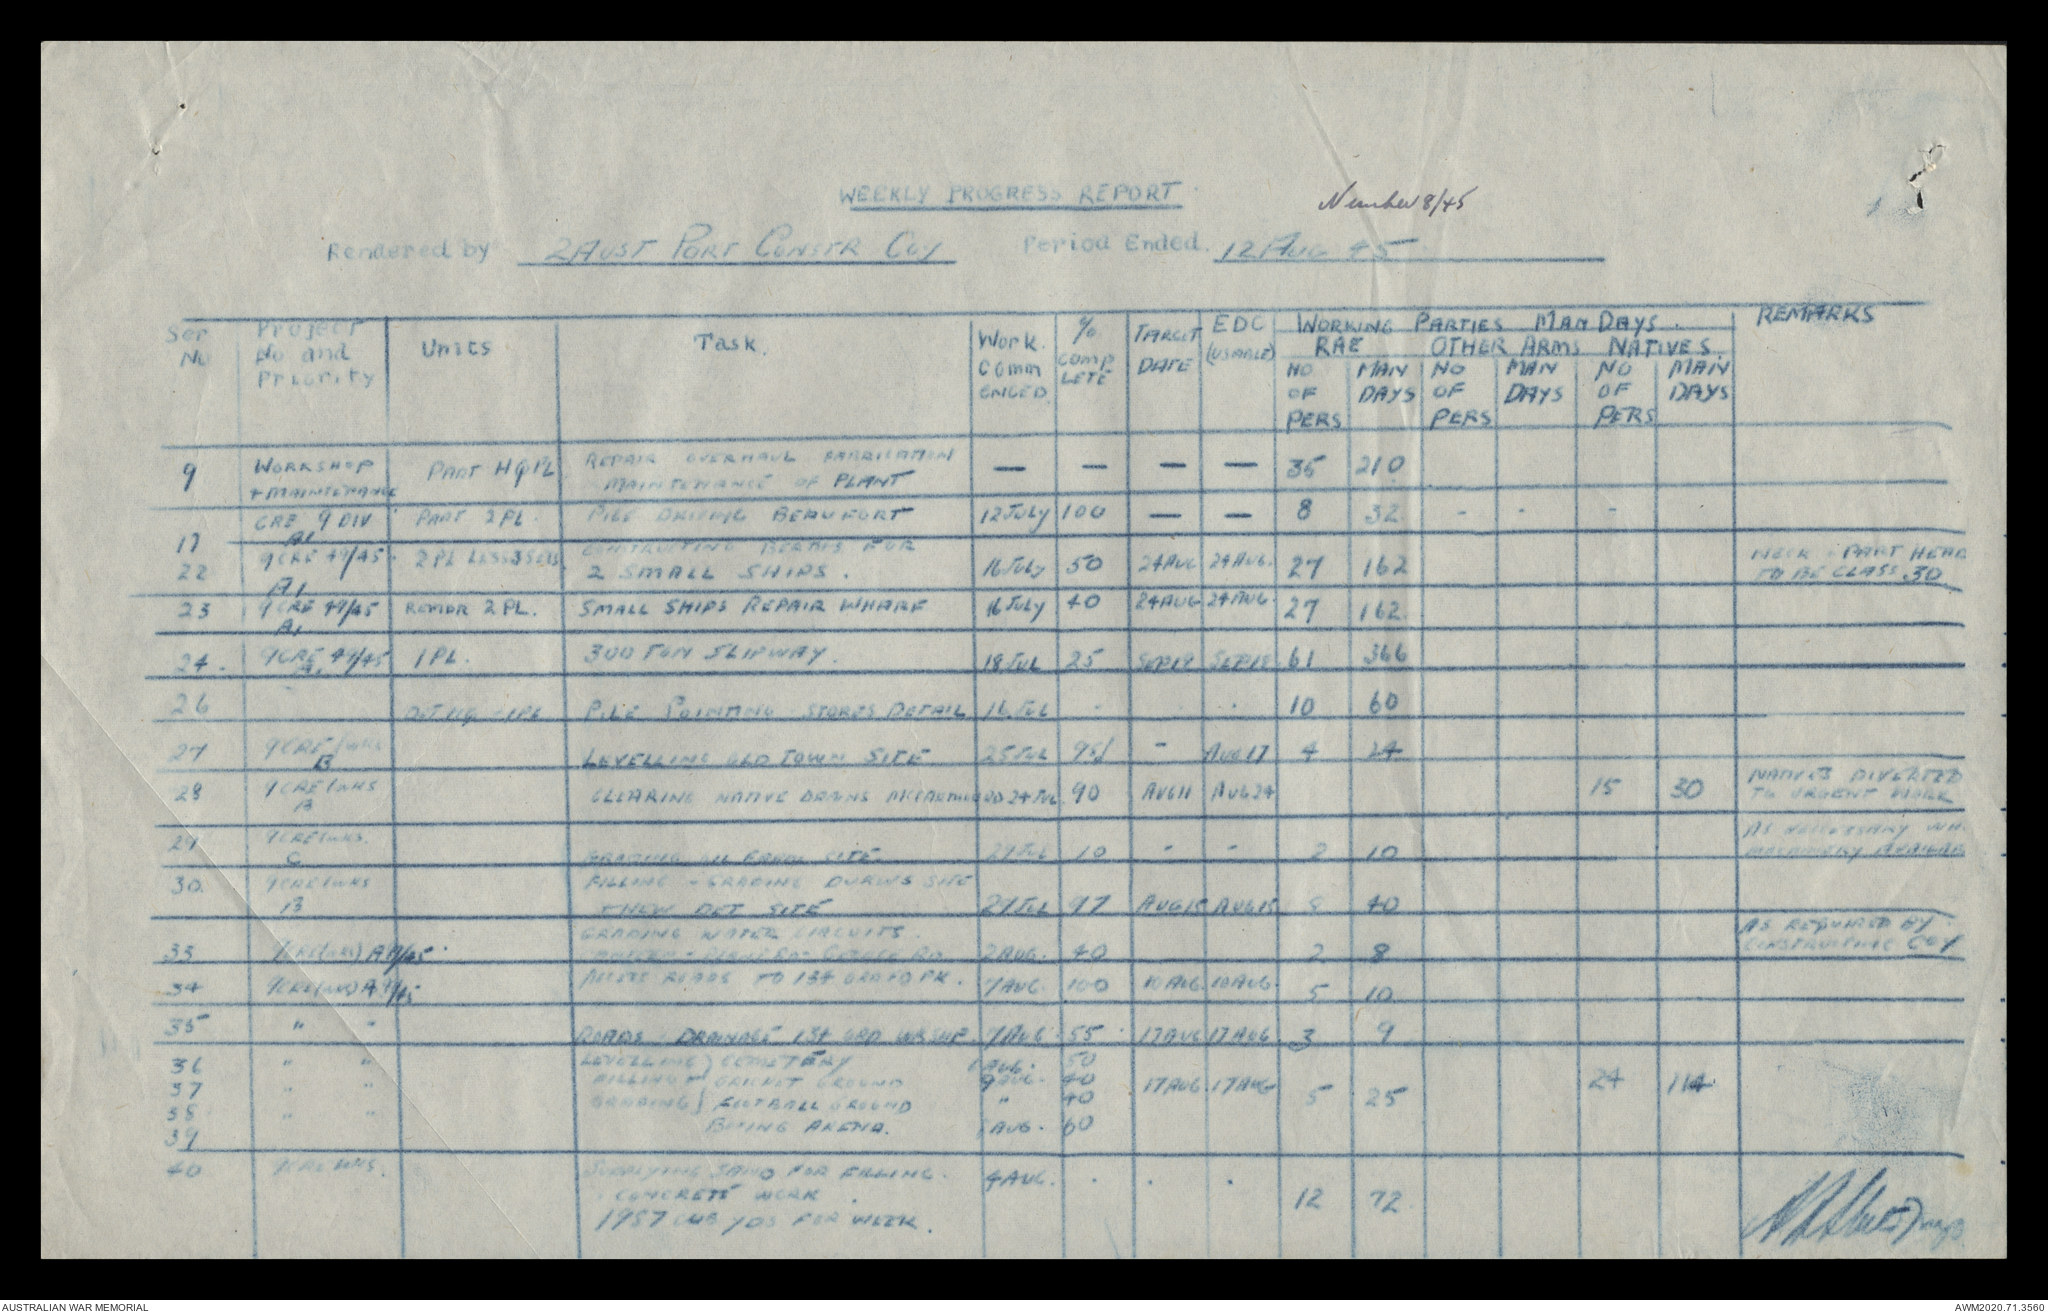 WEEKLY PROGRESS REPORT
Number 8/45
Rendered by 2 AUST PORT CONSTR COY Period Ended. 12 AUG 45
Ser No | Project No and Priority | Units | Task. | Work. COMM ENCED | % COMP LETE | TARGET DATE | EDC (USABLE) | WORKING PARTIES MAN DAYS. | REMARKS
RAE | OTHER ARMS | NATIVES.
NO OF PERS | MAN DAYS | NO OF PERS | MAN DAYS | NO OF PERS | MAN DAYS
9 | WORKSHOP + MAINTENANCE | PART HQ PL | REPAIR OVERHAUL FABRICATION MAINTENANCE OF PLANT | — | — | — | — | 35 | 210
17 | CRE 9 DIV A1 | PART 2 PL. | PILE DRIVING BEAUFORT | 12 JULY | 100 | — | — | 8 | 32 | - | - | -
22 | 9 CRE 49/45. A1 | 2 PL LESS 3 SECS | CONSTRUCTING BERTHS FOR 2 SMALL SHIPS. | 16 JULY | 50 | 24 AUG | 24 AUG. | 27 | 162 | NECK + PART HEAD TO BE CLASS 30
23 | 9 CRE 49/45 A1 | REMDR 2 PL. | SMALL SHIPS REPAIR WHARF | 16 JULY | 40 | 24 AUG | 24 AUG. | 27 | 162
24. | 9 CRE 49/45 A1 | 1 PL. | 300 TON SLIPWAY. | 18 JUL | 25 | SEP 19 | SEP 19 | 61 | 366
26 | DET HQ - 1 PL | PILE POINTING - STORES DETAIL | 16 JUL | - | - | - | 10 | 60
27 | 9 CRE/WKS B | LEVELLING OLD TOWN SITE | 25 JUL | 95 | - | AUG 17 | 4 | 24
28 | 9 CRE/WKS B | CLEARING NATIVE DRAINS RD | 24 JUL | 90 | AUG 11 | AUG 24 | 15 | 30 | NATIVES DIVERTED TO URGENT WORK
29 | 9 CRE/WKS. C | GRADING SITE. | 27 JUL | 10 | - | - | 2 | 10 | AS NECESSARY WH. MACHINERY AVAILABLE
30. | 9 CRE/WKS B | FILLING - GRADING SITE + NEW DET SITE | 27 JUL | 97 | AUG 15 | AUG 15 | 8 | 40
33 | 9 CRE(WKS) A 49/45. | GRADING WATER CIRCUITS. RD | 2 AUG. | 40 | 2 | 8 | AS REQUIRED BY CONSTRUCTING COY
34 | 9 CRE(WKS) A 49/45 | ACCESS ROADS TO 134 ORD FD PK. | 7 AUG. | 100 | 10 AUG. | 10 AUG. | 5 | 10
35 | " " | ROADS - DRAINAGE 134 ORD WKSHP. | 7 AUG. | 55 | 17 AUG | 17 AUG | 3 | 9
36 | " " | LEVELLING) CEMETERY | AUG. | 50
37 | " " | FILLING + CRICKET GROUND | 9 AUG. | 40 | 17 AUG. | 17 AUG | 5 | 25 | 24 | 114
38 | " " | GRADING) FOOTBALL GROUND | " | 40
39 | BOXING ARENA. | AUG. | 60
40 | 9 CRE WKS. | SUPPLYING SAND FOR FILLING. + CONCRETE WORK. 1957 CUB YDS FOR WEEK. | 4 AUG. | . | . | . | 12 | 72
AUSTRALIAN WAR MEMORIAL
AWM2020.71.3560